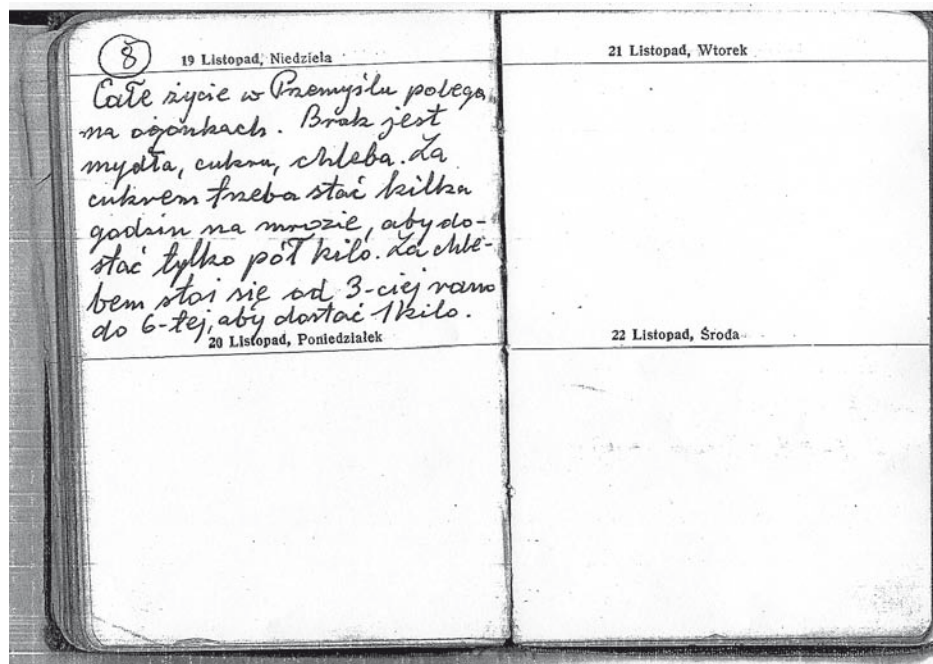 8
19 Listopad, Niedziela
Całe życie w Przemyślu polega
na ogonkach. Brak jest
mydła, cukru, chleba. Za
cukrem trzeba stać kilka
godzin na mrozie, aby do-
stać tylko pół kilo. Za chle-
bem stoi się od 3-ciej rano
do 6-tej, aby dostać 1 kilo.
20 Listopad, Poniedziałek
21 Listopad, Wtorek
22 Listopad, Środa